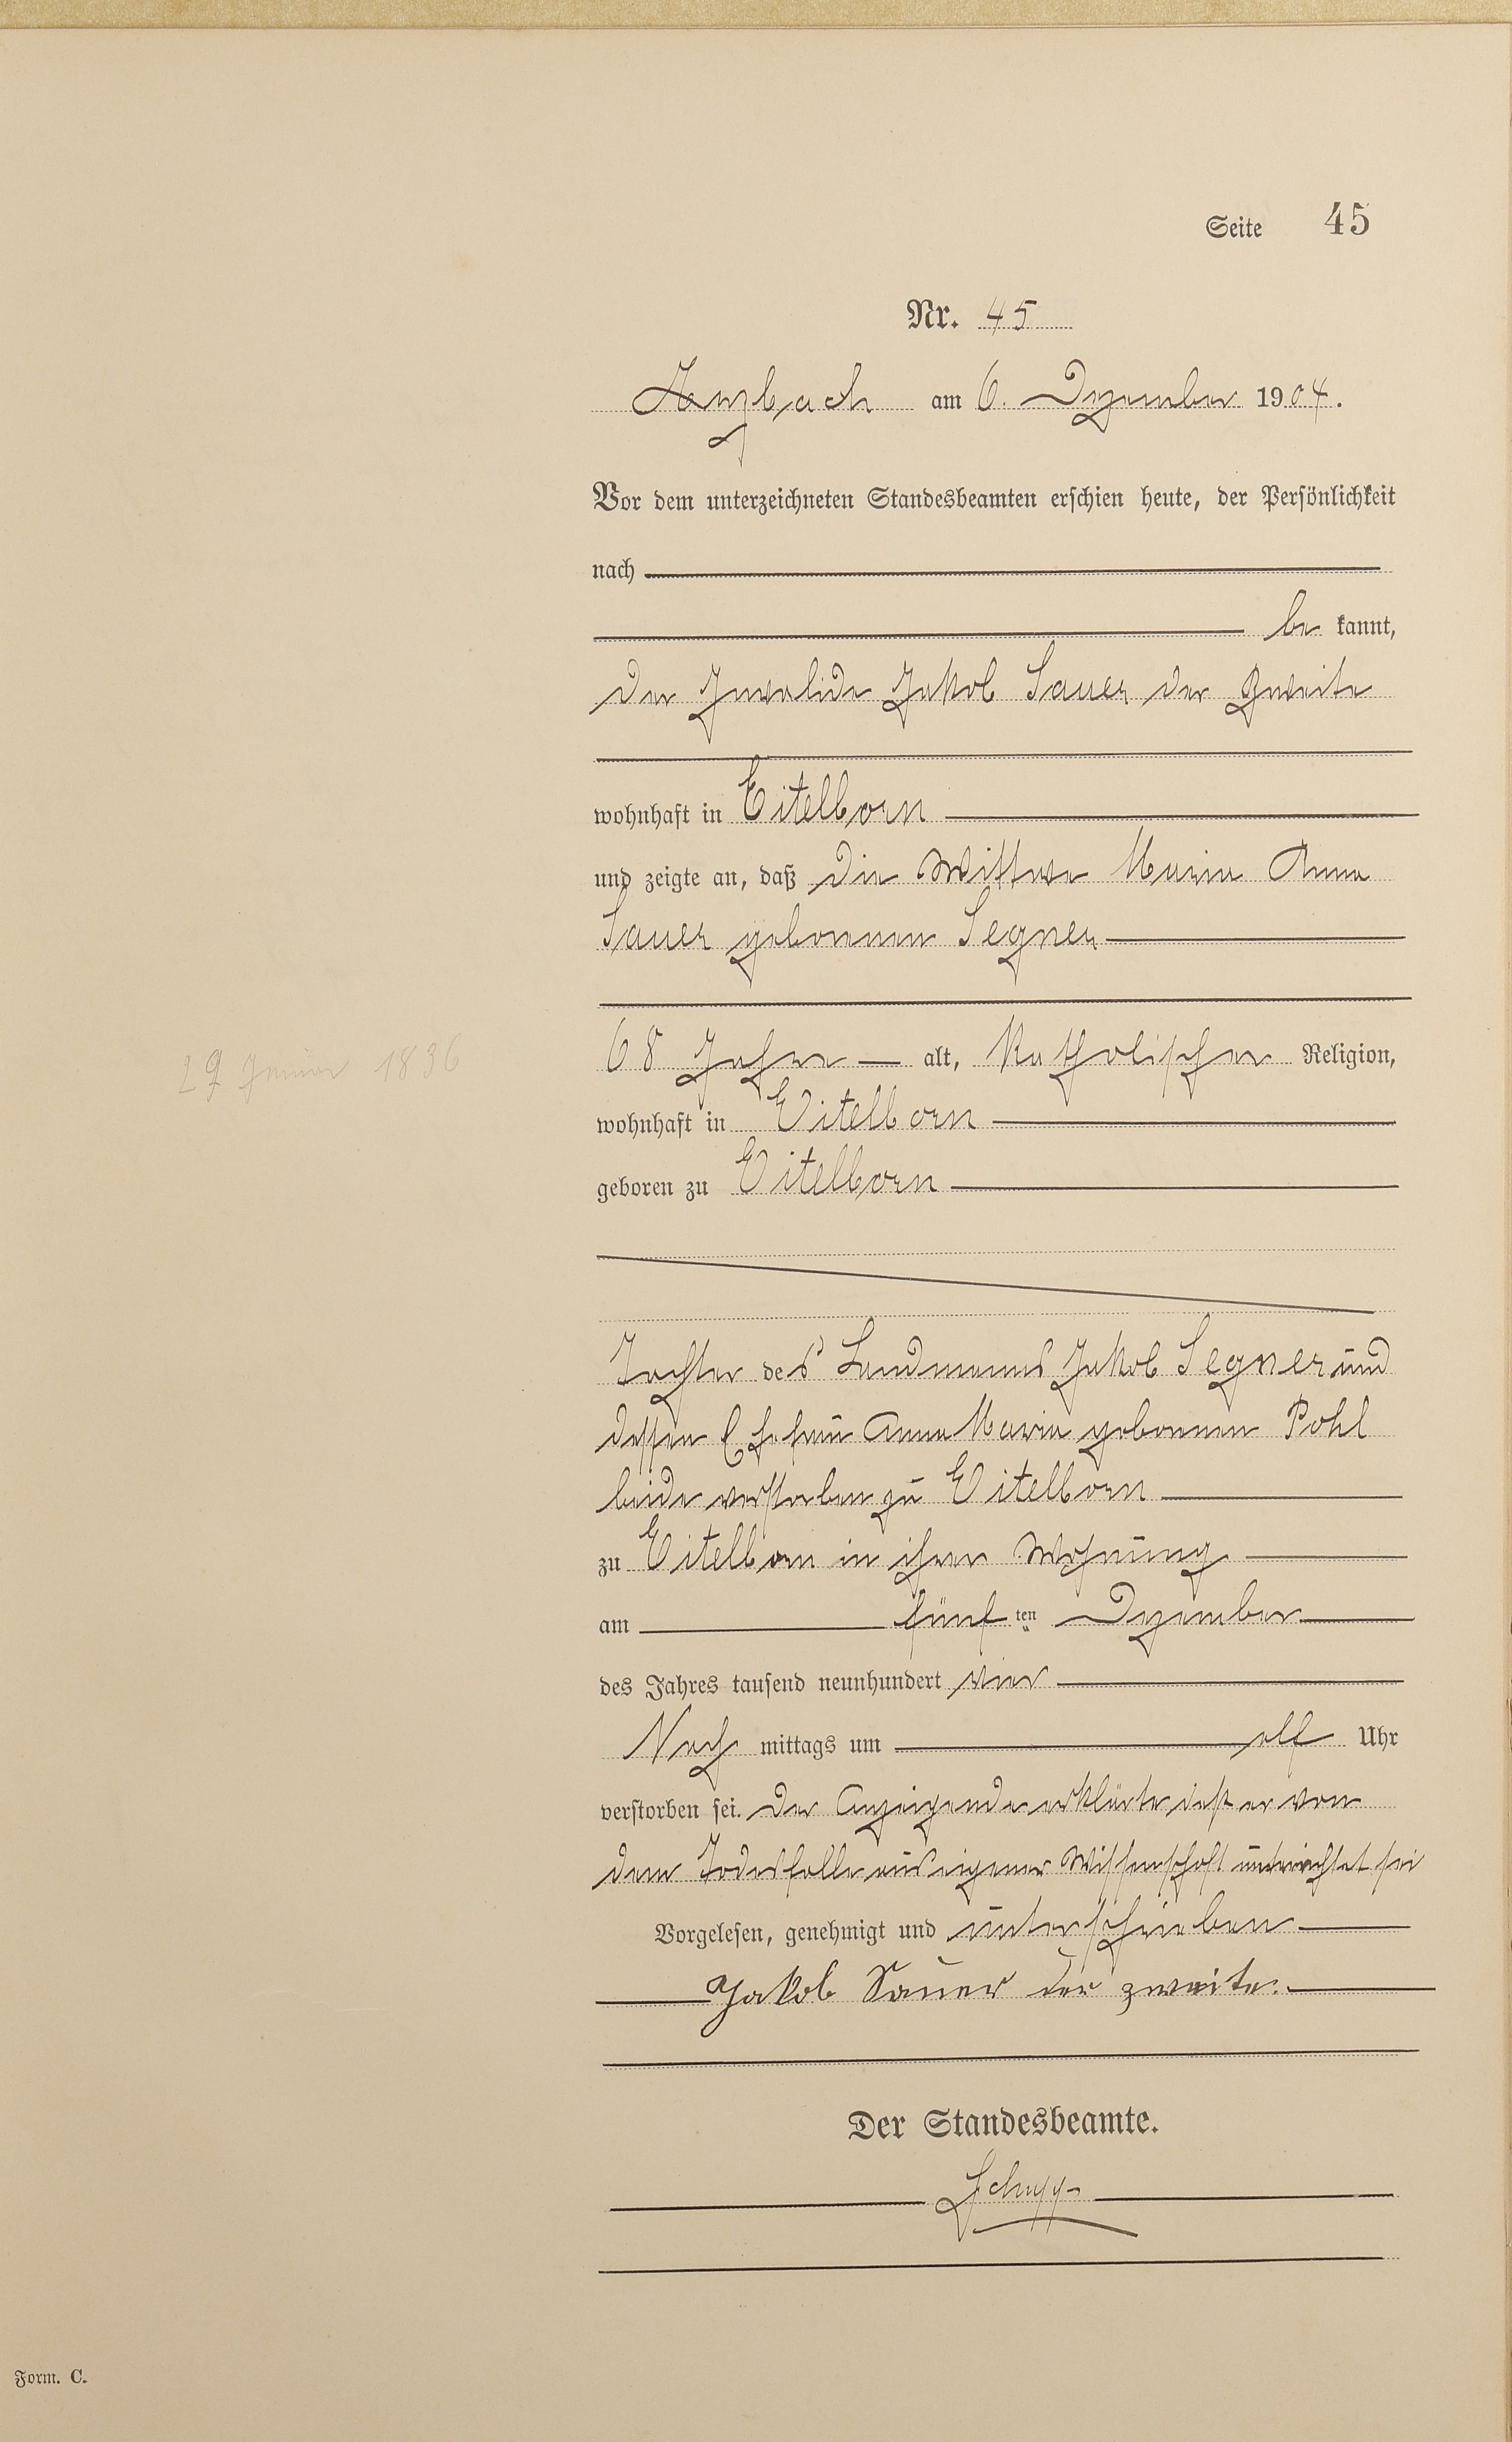 Seite 45
Nr. 45
Arzbach am 6. Dezember 1904.
Vor dem unterzeichneten Standesbeamten erschien heute, der Persönlichkeit
nach
be kannt,
der Invalide Jakob Sauer der Zweite
wohnhaft in Eitelborn
und zeigte an, daß die Wittwe Maria Anna
Sauer geborenen Segner
68 Jahre alt, Katholischer Religion,
29 Januar 1836
wohnhaft in Eitelborn
geboren zu Eitelborn
Tochter des Landmanns Jakob Segner und
dessen Ehefrau Anna Maria geborenen Pohl
beide verstorben zu Eitelborn
zu Eitelborn in ihrer Wohnung
am fünf ten Dezember
des Jahres tausend neunhundert vier
Nach mittags um elf Uhr
verstorben sei. Der Anzeigende erklärte daß er von
dem Todesfalle aus eigener Wissenschaft unterrichtet sei
Vorgelesen, genehmigt und unterschrieben
Jakob Sauer der zweite.
Der Standesbeamte.
Schupp
Form. C.